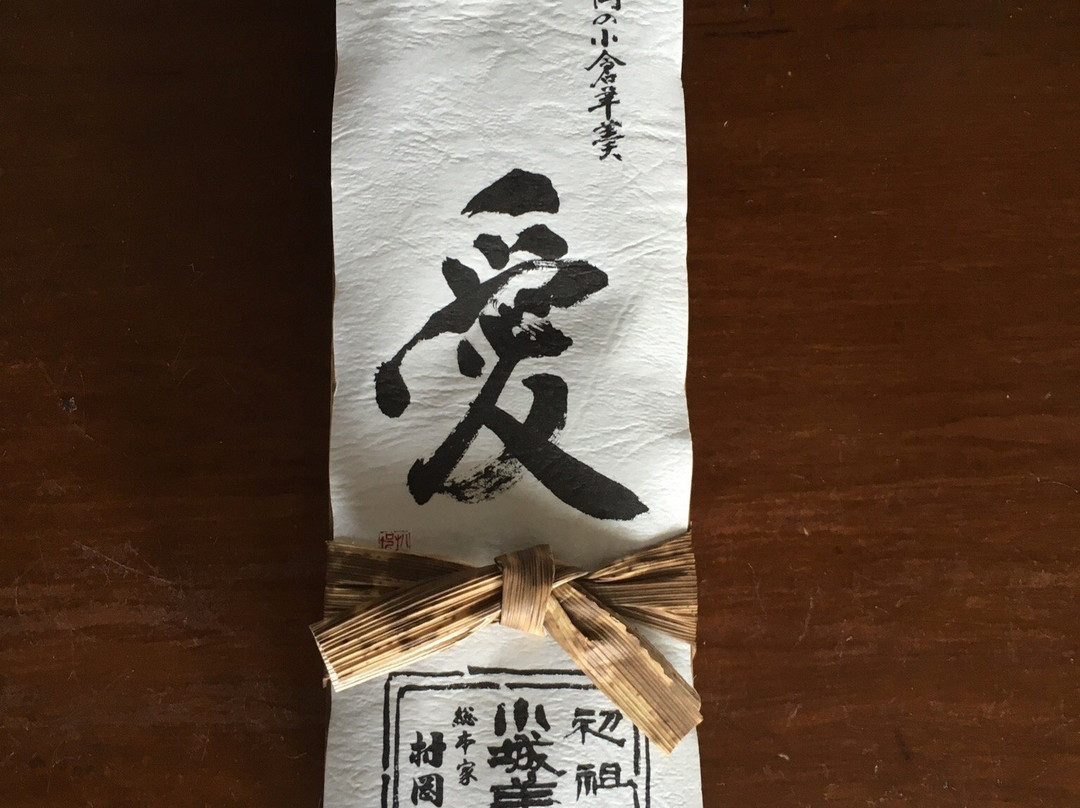 の小倉羊羹
愛
初祖
小城羊
総本家
村岡